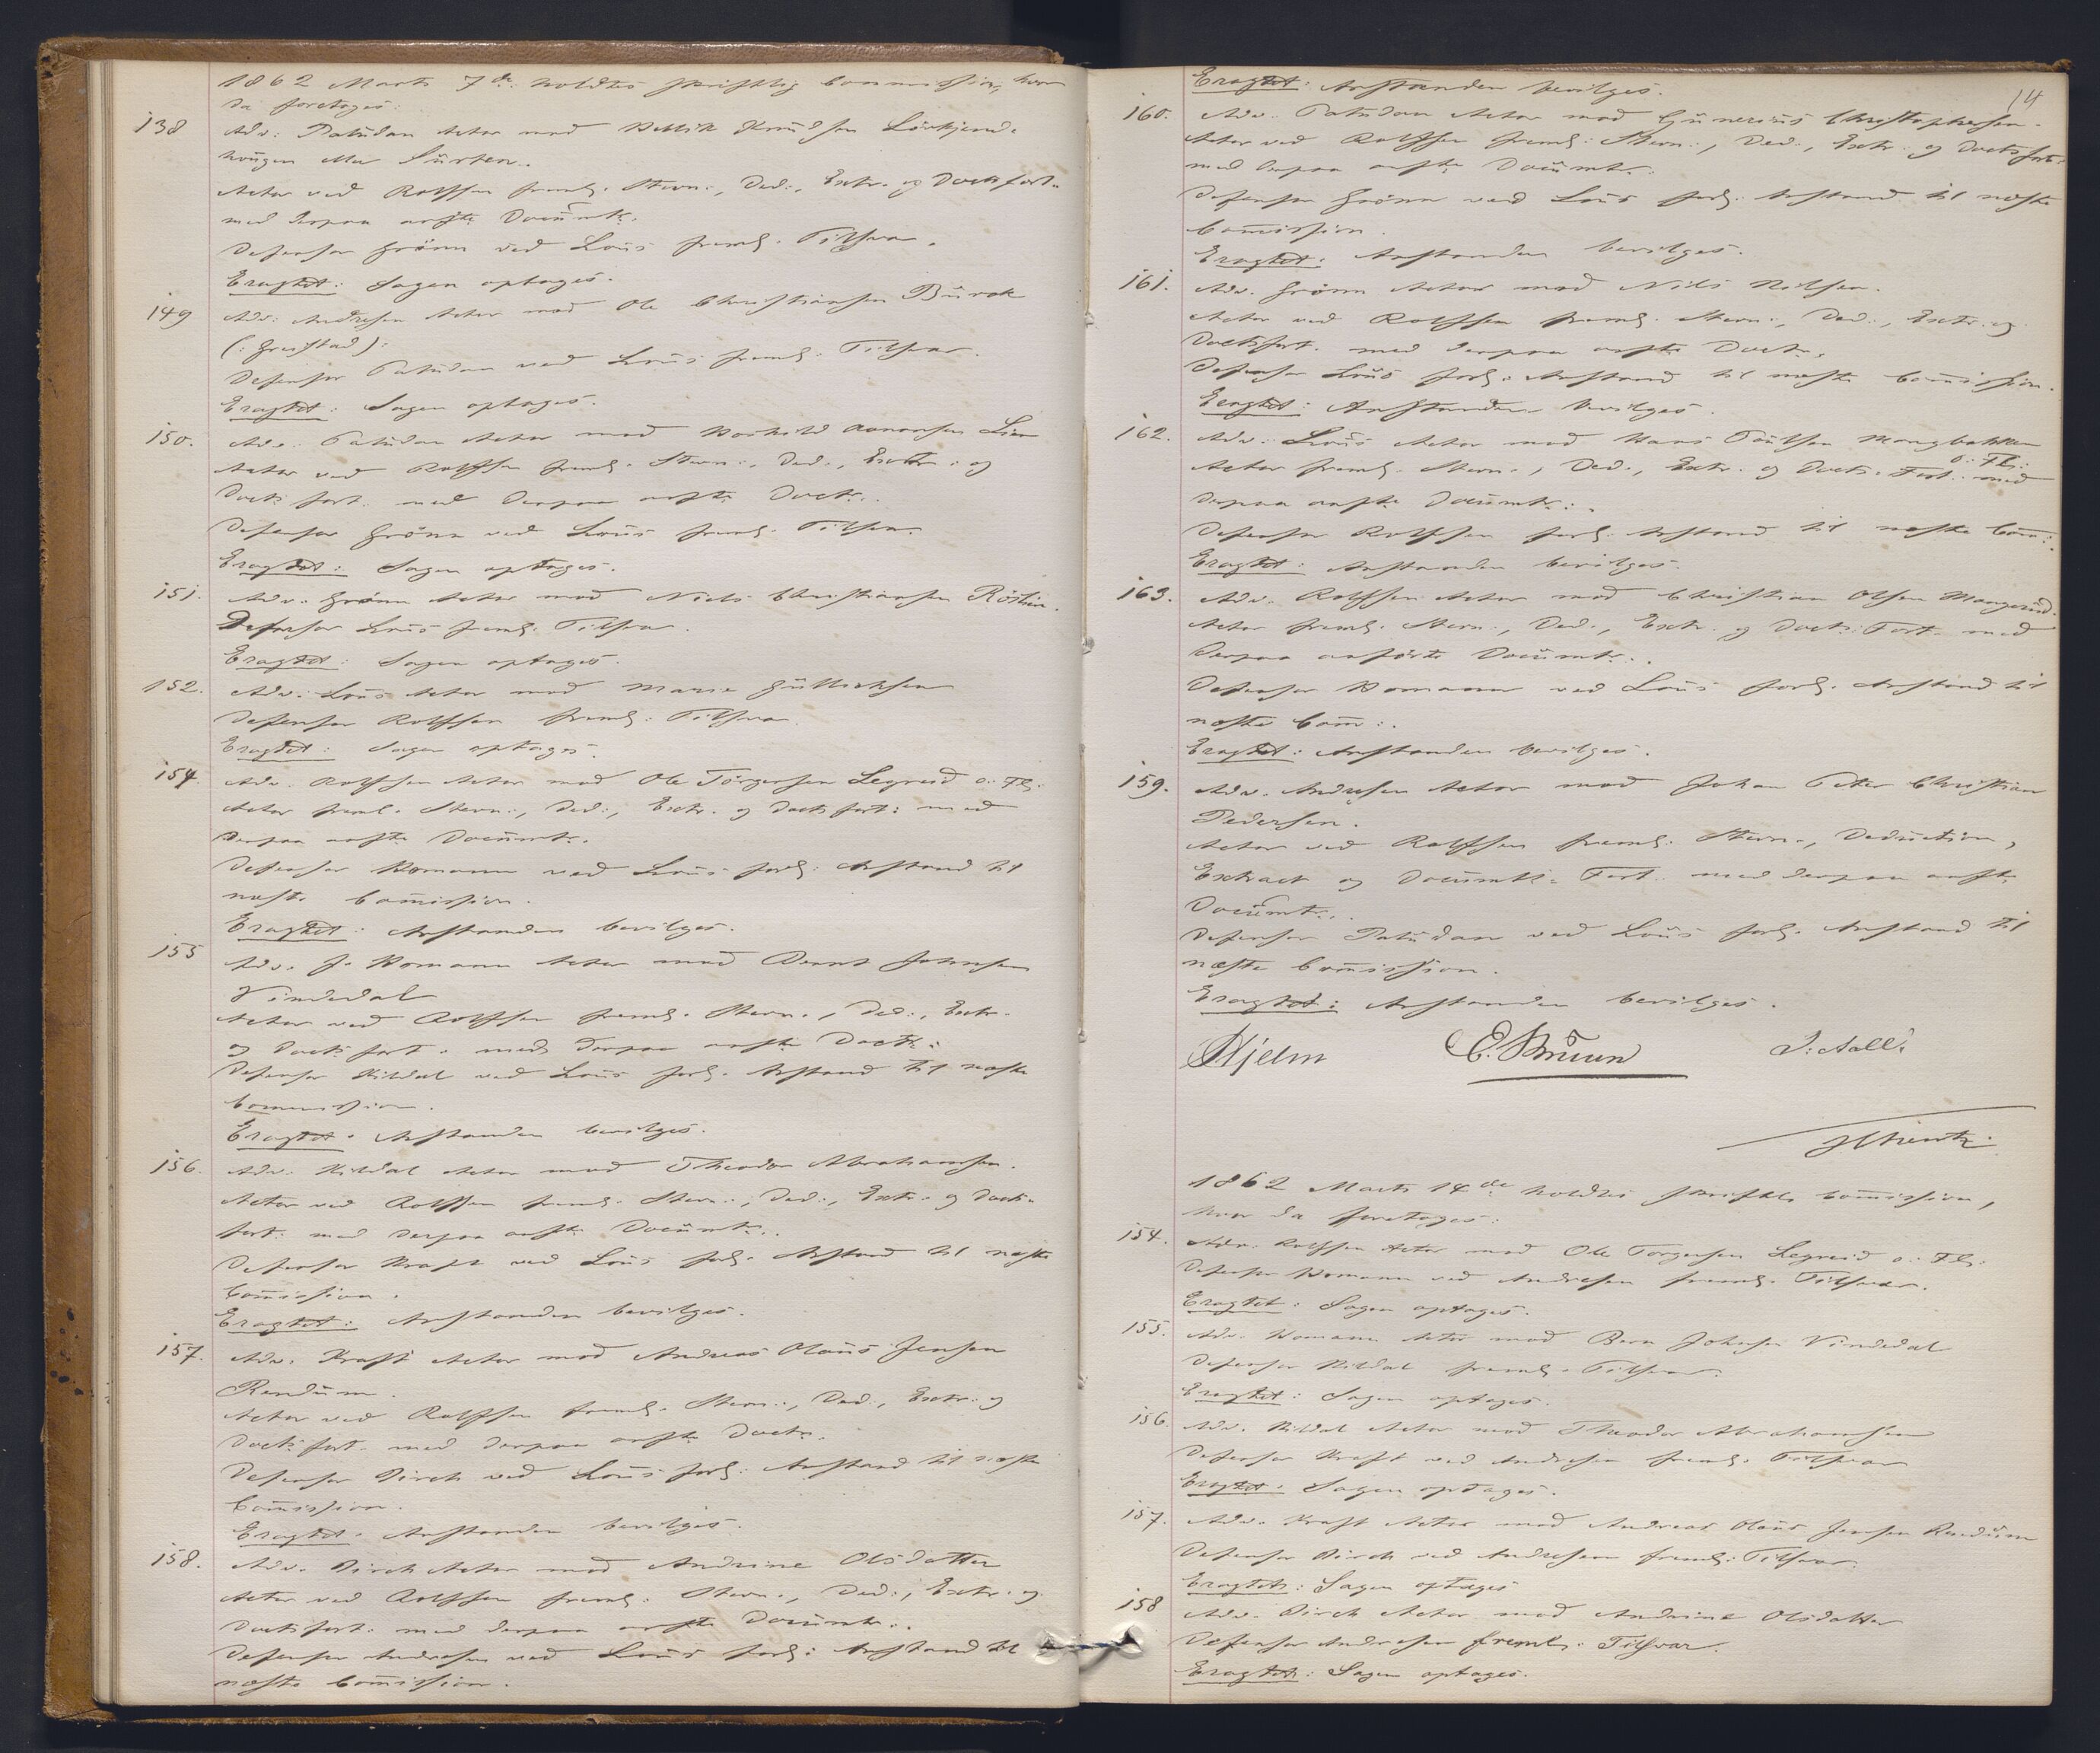 1862 Marts 7de holdtes skriftlig Commission, hvor
da foretoges:
138 Adv: Paludan Actor mod Kittil Knudsen
haugen eller Surten.
Actor ved Rolfsen freml. Stevn:, Ded:, Extr. og Docts fort.
med derpaa anfte Documtr.
Defensor Grönn ved Lous freml. Tilsvar.
Eragtet: Sagen optages.
149 Adv: Andresen Actor mod Ole Christiansen Burok
(: Grestad):
Defensor Paludan ved Lous freml: Tilsvar.
Eragtet: Sagen optages.
150. Adv. Paludan Actor mod Aanonsen Lien
Actor ved Rolfsen freml. Stevn:, Ded., Extr: og
Docts fort. med derpaa anfte Doctr.
Defensor Grönn ved Lous freml. Tilsvar.
Eragtet: Sagen optages.
151. Adv. Grönn Actor mod Niels Christiansen
Defensor Lous freml. Tilsvar.
Eragtet: Sagen optages.
152. Adv. Lous Actor mod Marie Gulliksen
Defensor Rolfsen freml: Tilsvar.
Eragtet: Sagen optages.
154. Adv. Rolfsen Actor mod Ole Törgersen Legreid o: Fl:
Actor freml. Stevn:, Ded:, Extr. og Docts fort: med
derpaa anfte Documtr.
Defensor Homann ved Lous forl: Anstand til
næste Commission.
Eragtet: Anstanden bevilges.
155 Adv. J. Homann Actor mod Bernt Johnsen
Vindedal
Actor ved Rolfsen freml. Stevn., Ded:, Extr.
og Docts fort. med derpaa anfte Doctr:
Defensor Kildal ved Lous forl. Anstand til næste
Commission.
Eragtet. Anstanden bevilges.
156. Adv. Kildal Actor mod Theodor Abrahamsen.
Actor ved Rolfsen freml. Stevn:, Ded:, Extr. og Docts
fort. med derpaa anfte Documtr.
Defensor Kraft ved Lous forl. Anstand til næste
Commission.
Eragtet: Anstanden bevilges.
157. Adv. Kraft Actor mod Andreas Olaus Jensen
Rendum.
Actor ved Rolfsen freml. Stevn:, Ded:, Extr: og
Docts fort. med derpaa anfte Doctr.
Defensor Birch ved Lous forl: Anstand til næste
Commission.
Eragtet. Anstanden bevilges.
158. Adv. Birch Actor mod Andrine Olsdatter
Actor ved Rolfsen freml: Stevn., Ded:, Extr. og
Docts fort: med derpaa anfte Documtr.
Defensor Andresen ved Lous forl: Anstand til
næste Commission.
14
Eragtet: Anstanden bevilges.
160. Adv. Paludan Actor mod Gunerius Christophersen.
Actor ved Rolfsen freml: Stevn:, Ded., Extr: og Docts fort:
med derpaa anfte Documtr.
Defensor Grönn ved Lous forl: Anstand til næste
Commission.
Eragtet: Anstanden bevilges.
161. Adv. Grönn Actor mod Nils Nilsen.
Actor ved Rolfsen freml. Stevn:, Ded:, Extr. og
Docts fort. med derpaa anfte Doctr.
Defensor Lous forl. Anstand til næste Commission.
Eragtet: Anstanden bevilges.
162. Adv. Lous Actor mod Hans Poulsen Mangbakken
o: Fl:
Actor freml. Stevn., Ded., Extr. og Docts. Fort. med
derpaa anfte Documtr:.
Defensor Rolfsen forl. Anstand til næste Comm:.
Eragtet: Anstanden bevilges.
163. Adv. Rolfsen Actor mod Christian Olsen Mangerud.
Actor freml. Stevn:, Ded., Extr. og Docts: Fort. med
derpaa anførte Documtr:.
Defensor Homann ved Lous forl. Anstand til
næste Comm:.
Eragtet: Anstanden bevilges.
159. Adv. Andresen Actor mod Johan Peter Christian
Pedersen.
Actor ved Rolfsen freml: Stevn., Deduction,
Extract og Documts. Fort. med derpaa anfte
Documtr.
Defensor Paludan ved Lous forl. Anstand til
næste Commission.
Eragtet: Anstanden bevilges.
Hjelm E. Bruun J: Aall.
1862 Marts 14de holdtes skriftl. Commission,
hvor da foretoges:
154. Adv. Rolfsen Actor mod Ole Torgersen Legreid o: Fl:
Defensor Homann ved Andresen freml. Tilsvar.
Eragtet: Sagen optages.
155. Adv. Homann Actor mod Bern Johnsen Vindedal
Defensor Kildal freml. Tilsvar.
Eragtet: Sagen optages.
156. Adv. Kildal Actor mod Theodor Abrahamsen
Defensor Kraft ved Andresen freml. Tilsvar
Eragtet. Sagen optages.
157. Adv. Kraft Actor mod Andreas Olaus Jensen Rendum
Defensor Birch ved Andresen freml: Tilsvar.
Eragtet: Sagen optages
158 Adv. Birch Actor mod Andrine Olsdatter
Defensor Andresen freml: Tilsvar.
Eragtet: Sagen optages.